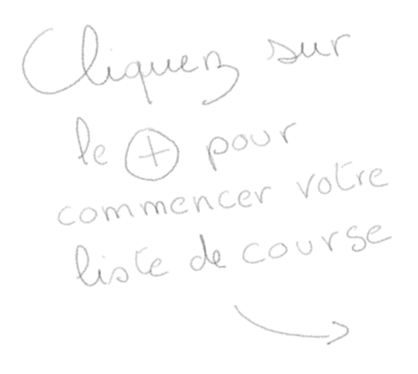 Cliquez sur
le + pour
commencer votre
liste de course